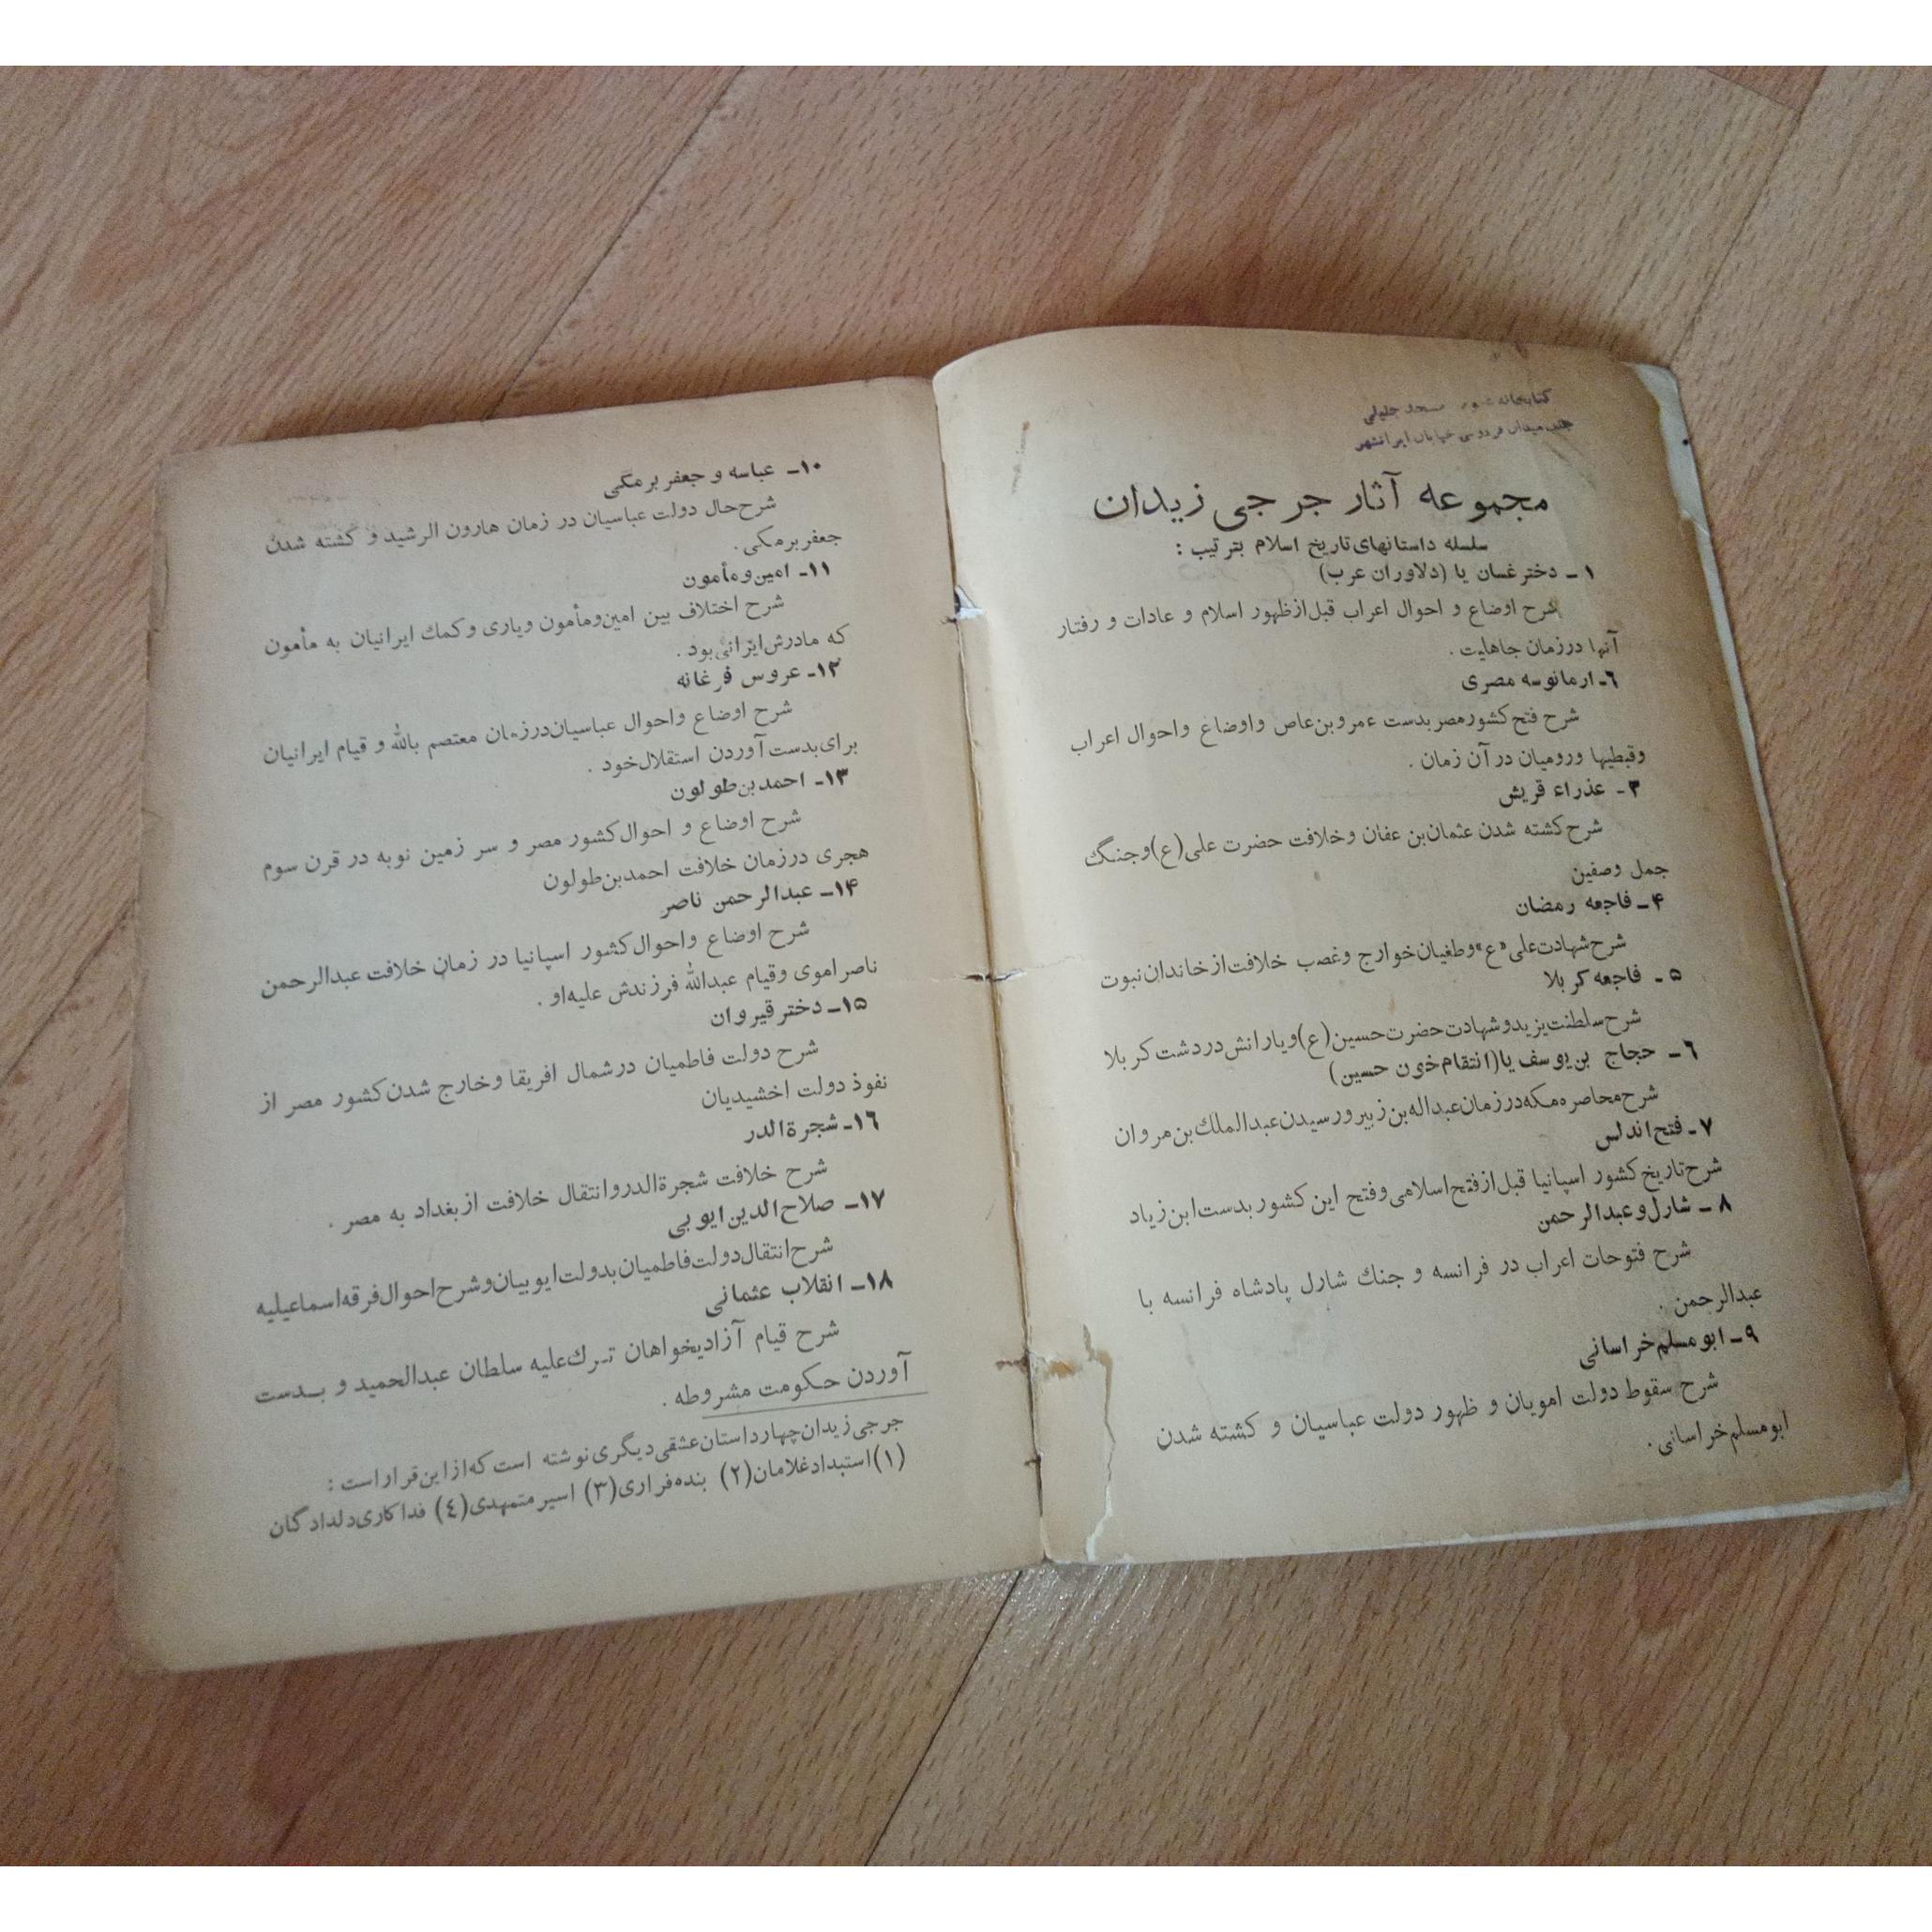 کتابخانه مسجد جلیلی
جنب میدان فردوسی خیابان ایرانشهر
مجموعه آثار جرجی زیدان
سلسله داستانهای تاریخ اسلام بترتیب :
۱ - دختر غسان یا (دلاوران عرب)
شرح اوضاع و احوال اعراب قبل از ظهور اسلام و عادات و رفتار
آنها در زمان جاهلیت .
٦- ارمانوسه مصری
شرح فتح کشور مصر بدست عمرو بن عاص و اوضاع و احوال اعراب
وقبطیها ورومیان در آن زمان .
۳ - عذراء قریش
شرح کشته شدن عثمان بن عفان و خلافت حضرت علی (ع) و جنگ
جمل وصفین
۴ - فاجعه رمضان
شرح شهادت علی «ع» و طغیان خوارج و غصب خلافت از خاندان نبوت
۵ - فاجعه کربلا
شرح سلطنت یزید و شهادت حضرت حسین (ع) و یارانش در دشت کربلا
٦ - حجاج بن یوسف یا (انتقام خون حسین)
شرح محاصره مکه در زمان عبداله بن زبیر و رسیدن عبدالملك بن مروان
۷ - فتح اندلس
شرح تاریخ کشور اسپانیا قبل از فتح اسلامی و فتح این کشور بدست ابن زیاد
۸ - شارل و عبدالرحمن
شرح فتوحات اعراب در فرانسه و جنك شارل پادشاه فرانسه با
عبدالرحمن .
۹ - ابومسلم خراسانی
شرح سقوط دولت امویان و ظهور دولت عباسیان و کشته شدن
ابومسلم خراسانی .
۱۰ - عباسه و جعفر برمکی
شرح حال دولت عباسیان در زمان هارون الرشید و کشته شدن
جعفر برمکی .
۱۱ - امین و مأمون
شرح اختلاف بین امین و مأمون و یاری و کمك ایرانیان به مأمون
که مادرش ایرانی بود .
۱۳ - عروس فرغانه
شرح اوضاع و احوال عباسیان در زمان معتصم بالله و قیام ایرانیان
برای بدست آوردن استقلال خود .
۱۳ - احمد بن طولون
شرح اوضاع و احوال کشور مصر و سر زمین نوبه در قرن سوم
هجری در زمان خلافت احمد بن طولون
۱۴ - عبدالرحمن ناصر
شرح اوضاع و احوال کشور اسپانیا در زمان خلافت عبدالرحمن
ناصر اموی و قیام عبدالله فرزندش علیه او .
۱۵ - دختر قیروان
شرح دولت فاطمیان در شمال افریقا و خارج شدن کشور مصر از
نفوذ دولت اخشیدیان
۱٦ - شجرةالدر
شرح خلافت شجرةالدر و انتقال خلافت از بغداد به مصر .
۱۷ - صلاح الدین ایوبی
شرح انتقال دولت فاطمیان بدولت ایوبیان و شرح احوال فرقه اسماعیلیه
۱۸ - انقلاب عثمانی
شرح قیام آزادیخواهان ترك علیه سلطان عبدالحمید و بدست
آوردن حکومت مشروطه .
جرجی زیدان چهار داستان عشقی دیگری نوشته است که از این قرار است :
(۱) استبداد غلامان (۲) بنده فراری (۳) اسیر متمهدی (٤) فداکاری دلدادگان